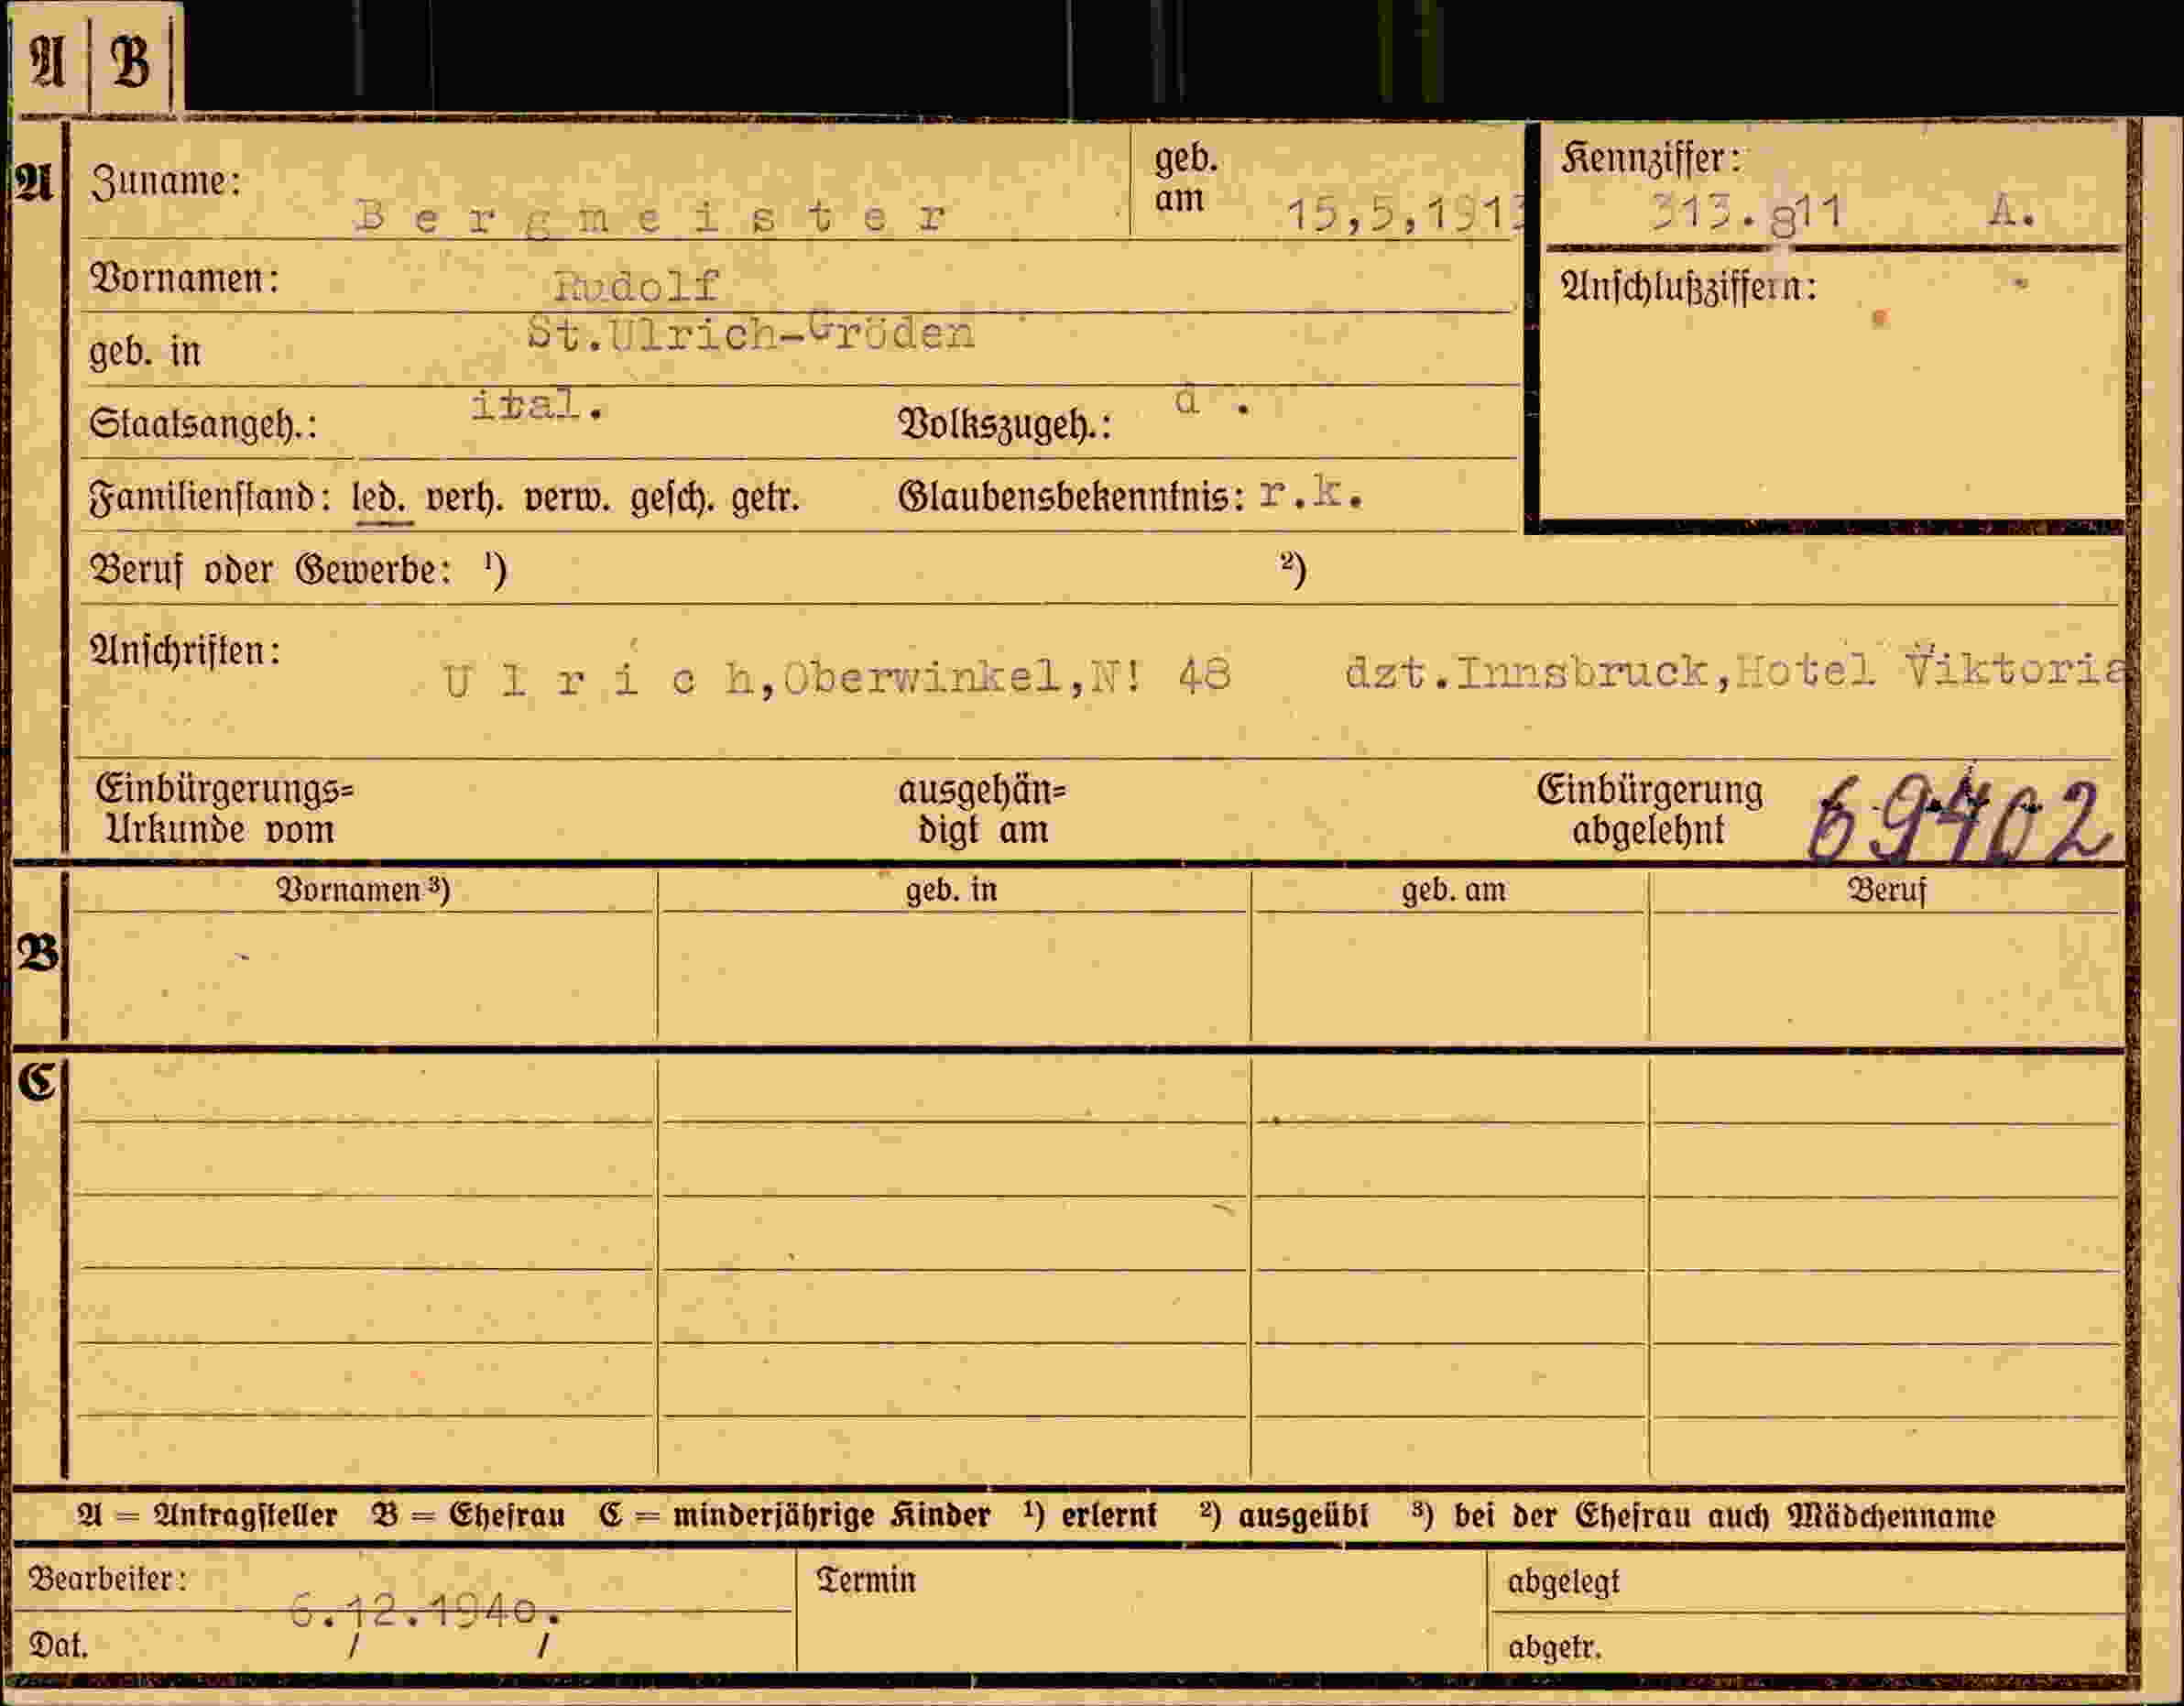 A B
A Zuname: Bergmeister geb. am 15,5,1913 Kennziffer: 313.811 A.
Vornamen: Rudolf Anschlußziffern:
geb. in St.Ulrich-Gröden
Staatsangeh.: ital. Volkszugeh.: d .
Familienstand: led. verh. verw. gesch. getr. Glaubensbekenntnis: r.k.
Beruf oder Gewerbe: ¹) ²)
Anschriften: U l r i c h,Oberwinkel,N! 48 dzt.Innsbruck,Hotel Viktoria
Einbürgerungs= ausgehän= Einbürgerung
Urkunde vom digt am abgelehnt 69402
Vornamen ³) geb. in geb. am Beruf
B
C
A = Antragsteller B = Ehefrau C = minderjährige Kinder ¹) erlernt ²) ausgeübt ³) bei der Ehefrau auch Mädchenname
Bearbeiter: Termin abgelegt
6.12.1940.
Dat. abgetr.